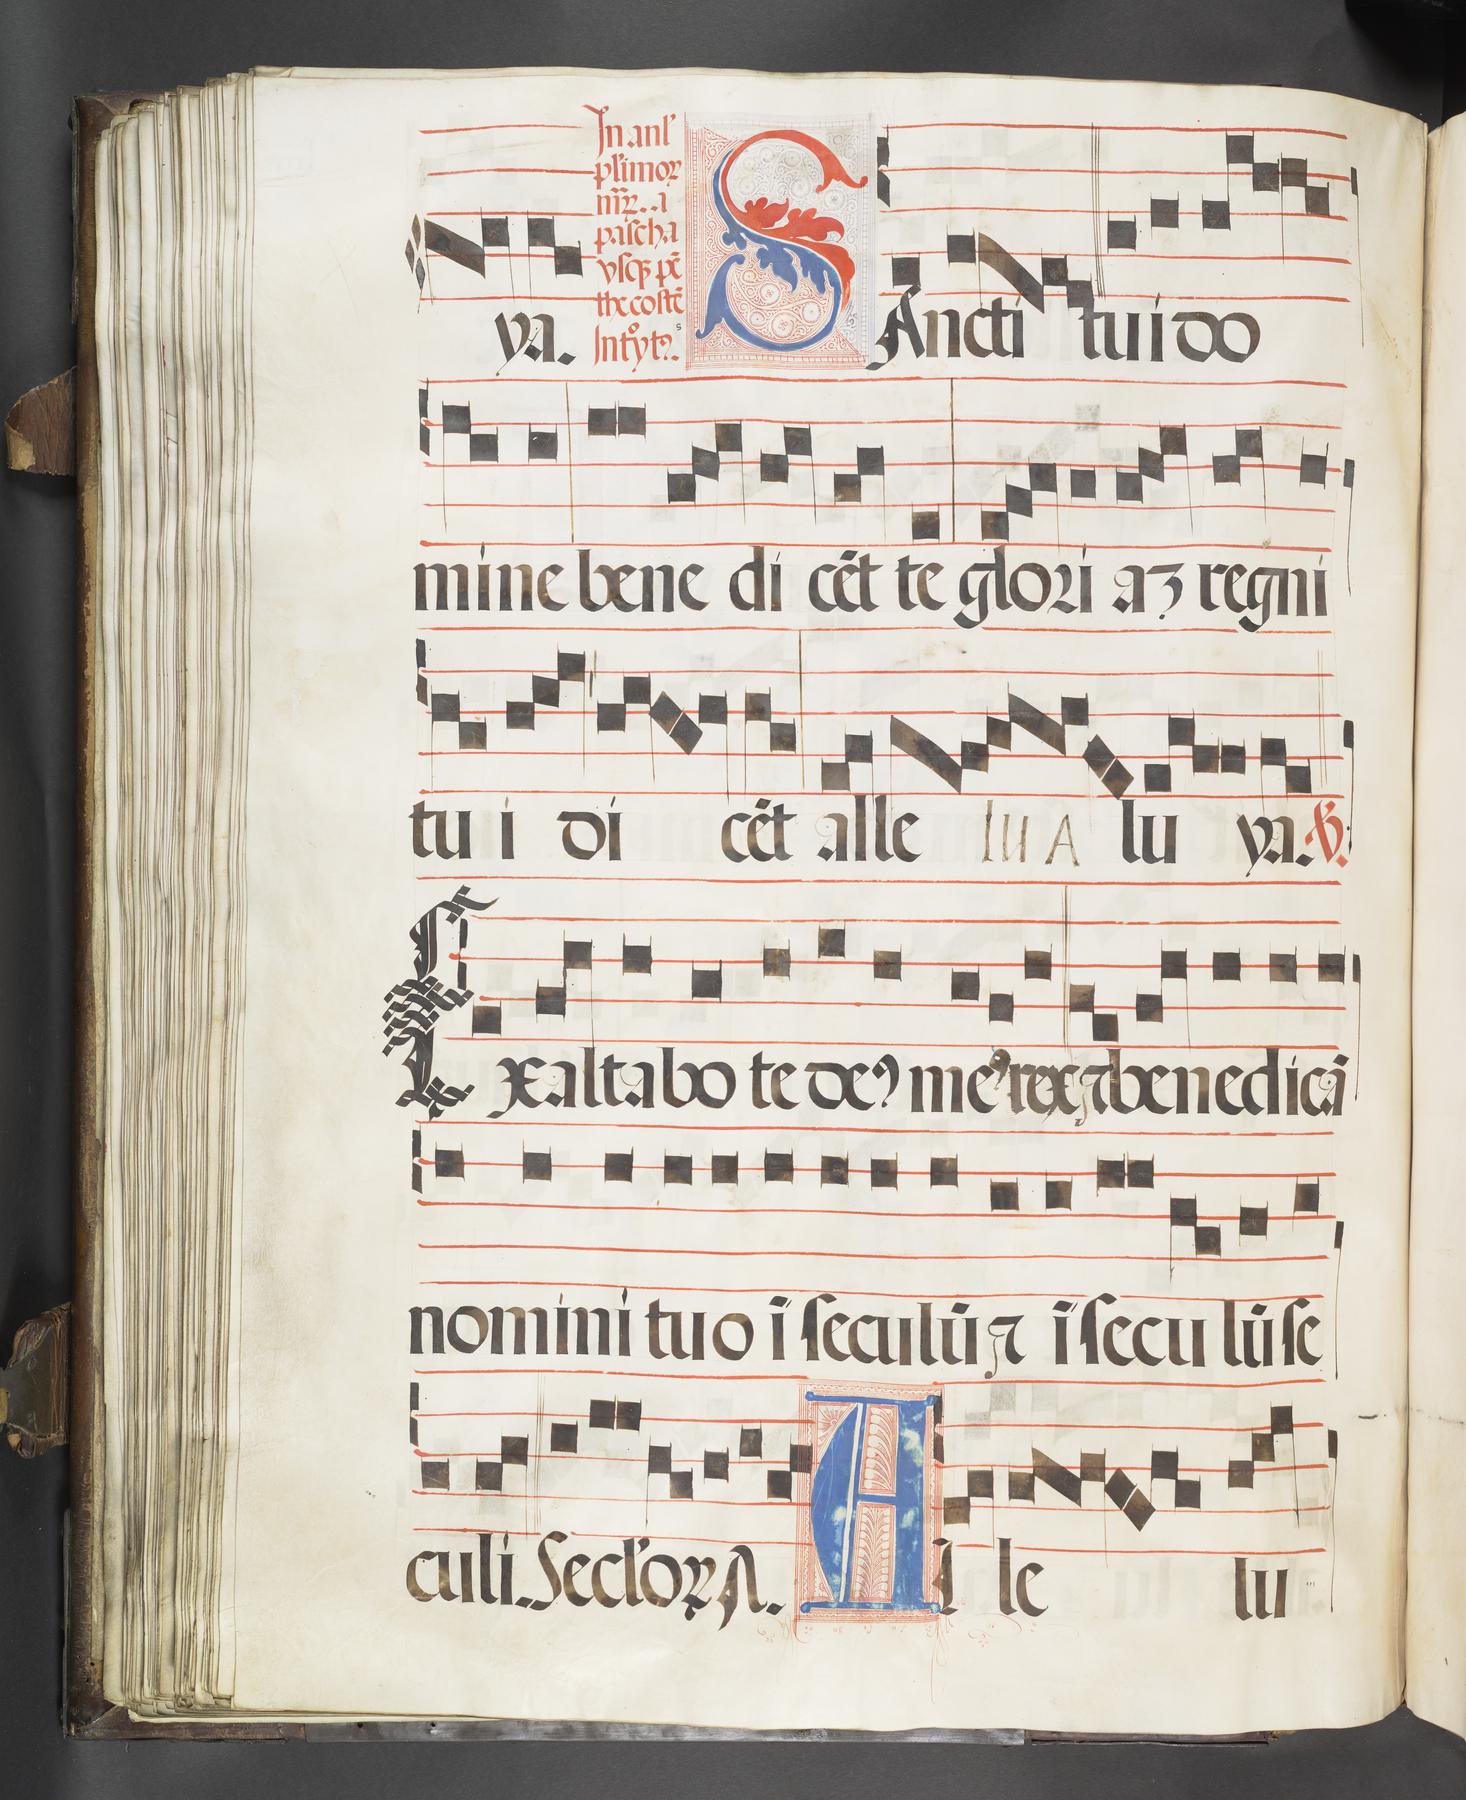 In anl'
pl'imoꝝ
mr̃ꝝ. a
pascha
vsqꝫ pẽ
thecostẽ
Introytꝰ.
ya. SAncti tui do
mine bene di cẽt te glori aꝫ regni
tu i di cẽt alle lu A lu ya. ℣.
Exaltabo te deꝰ meꝰ rex ⁊ benedicã
nomini tuo ĩ seculũ ⁊ ĩ secu lũ se
culi. Secl'oꝝ A. Al le lu